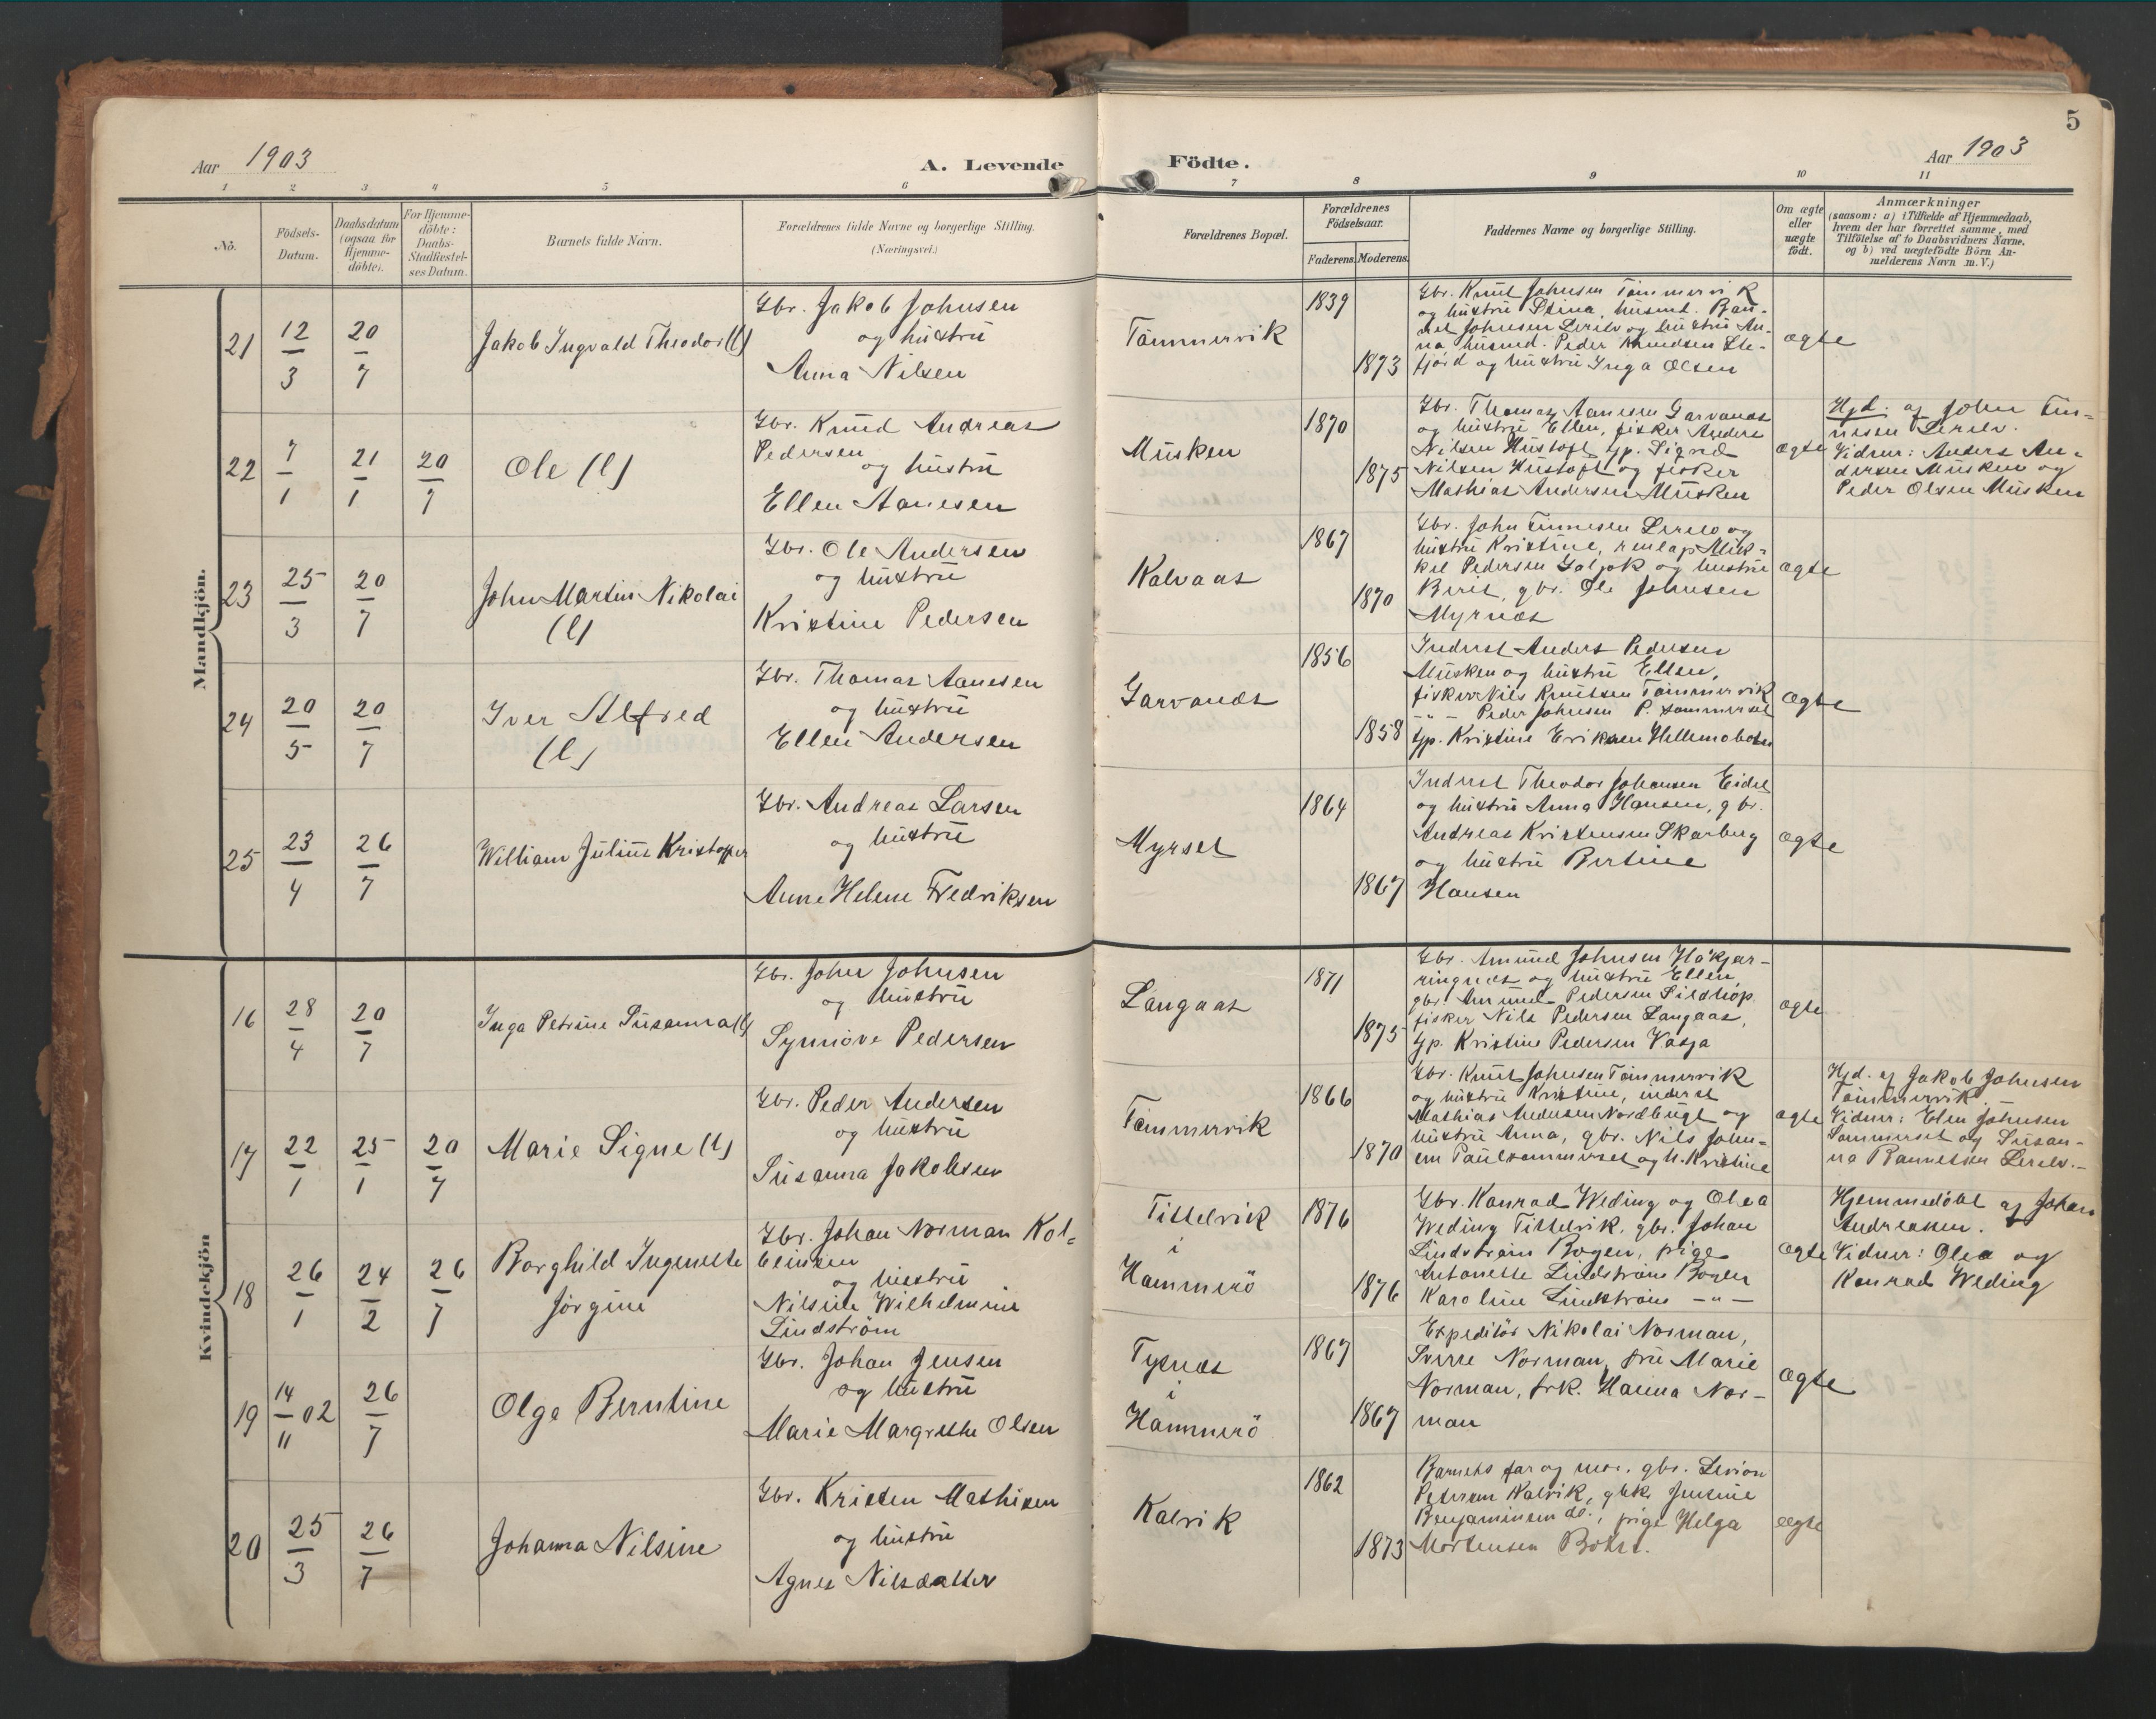 5
Aar 1903
A. Levende
Födte.
Aar 1903
1 2 3 4 5 6 7 8 9 10 11
No.
Födsels-
Datum.
Daabsdatum
(ogsaa for
Hjemme-
döbte).
For Hjemme-
döbte:
Daabs-
Stadfæstel-
ses Datum.
Barnets fulde Navn.
Forældrenes fulde Navne og borgerlige Stilling.
(Næringsvei.)
Forældrenes Bopæl.
Forældrenes
Födselsaar.
Faderens. Moderens.
Faddernes Navne og borgerlige Stilling.
Om ægte
eller
uægte
födt.
Anmærkninger
(saasom: a) i Tilfælde af Hjemmedaab,
hvem der har forrettet samme, med
Tilföielse af to Daabsvidners Navne.
og b) ved uægtefödte Börn An-
melderens Navn m. V.)
Mandkjön.
21
12/3
20/7
Jakob Ingvald Theodor (l)
Gbr. Jakob Johnsen
og hustru
Anna Nilsen
Tømmervik
1839
1873
Gbr. Knut Johnsen Tømmervik
og hustru Stina, husmd. Ban-
net Johnsen Lerelv og hustru An-
na husmd. Peder Knudsen Ste-
fjord og hustru Inga Olsen
ægte
22
7/1
21/1
20/7
Ole (l)
Gbr. Knud Andreas
Pedersen
og hustru
Ellen Aanesen
Musken
1870
1875
Gbr. Thomas Aanesen Garvanes
og hustru Ellen, fisker Anders
Nilsen Hustoft tjp. Signe
Nilsen Hustoft og fisker
Mathias Andersen Musken
ægte
Hjd. af John Fin-
nesen Lerelv.
Vidner: Anders An-
dersen Musken og
Peder Olsen Musken
23
25/3
20/7
John Martin Nikolai
(l)
Gbr. Ole Andersen
og hustru
Kristine Pedersen
Kalvaas
1867
1870
Gbr. John Finnesen Lerelv og
hustru Kristine, renlap Mik-
kel Pedersen Goljok og hustru
Berit, gbr. Ole Johnsen
Myrnes
ægte
24
20/5
20/7
Iver Alfred
(l)
Gbr. Thomas Aanesen
og hustru
Ellen Andersen
Garvanes
1856
1858
Inderst Anders Pedersen
Musken og hustru Ellen,
fisker Nils Knutsen Tømmervik
-"- Peder Johnsen P. sommerset
tjp. Kristine Eriksen Hellemobotn
ægte
25
23/4
26/7
William Julius Kristoffer
Gbr. Andreas Larsen
og hustru
Anne Helene Fredriksen
Myrset
1864
1867
Inderst Theodor Johansen Eidet
og hustru Anna Hansen, gbr.
Andreas Kristensen Skarberg
og hustru Bertine
Hansen
ægte
Kvindekjön
16
28/4
20/7
Inga Petrine Susanna (l)
Gbr. John Johnsen
og hustru
Synnøve Pedersen
Langaas
1871
1875
Gbr. Amund Johnsen Håkjer-
ringnes og hustru Ellen,
gbr. Amund Pedersen Sildhop.
fisker Nils Pedersen Langaas,
tjp. Kristine Pedersen Vasja
ægte
17
22/1
25/1
20/7
Marie Signe (l)
Gbr. Peder Andersen
og hustru
Susanna Jakobsen
Tømmervik
1866
1870
Gbr. Knut Johnsen Tømmervik
og hustru Kristine, inderst
Mathias Andersen Nordbugt og
hustru Anna, gbr. Nils John-
sen Paulsommerset og h. Kristine
ægte
Hjd. af Jakob Johnsen
Tømmervik
Vidner: Elen Johnsen
Sommerset og Susan-
na Bannetsen Lerelv.-
18
26/1
24/2
26/7
Borghild Ingenette
Jørgine
Gbr. Johan Norman Kol-
beinsen
og hustru
Nilsine Wilhelmine
Lindström
Tittelvik
i
Hammerö
1876
1876
Gbr. Konrad Weding og Olea
Weding Tittelvik, gbr. Johan
Lindstrøm Bogen, pige
Antonette Lindstrøm Bogen
Karoline Lindstrøm -"-
ægte
Hjemmedøbt af Johan
Andreassen.
Vidner: Olea og
Konrad Weding
19
14/11 02
26/7
Olga Berntine
Gbr. Johan Jensen
og hustru
Marie Margrethe Olsen
Tysnes
i
Hammerö
1867
1867
Expeditør Nikolai Norman,
Sverre Norman, fru Marie
Norman, frk. Hanna Nor-
man
ægte
20
25/3
26/7
Johanna Nilsine
Gbr. Kristen Mathisen
og hustru
Agnes Nilsdatter
Kalvik
1862
1873
Barnets far og mor. gbr. Sevion
Petersen Kalvik, gbk. Jensine
Benjaminsen do., pige Helga
Mortensen Botn.
ægte